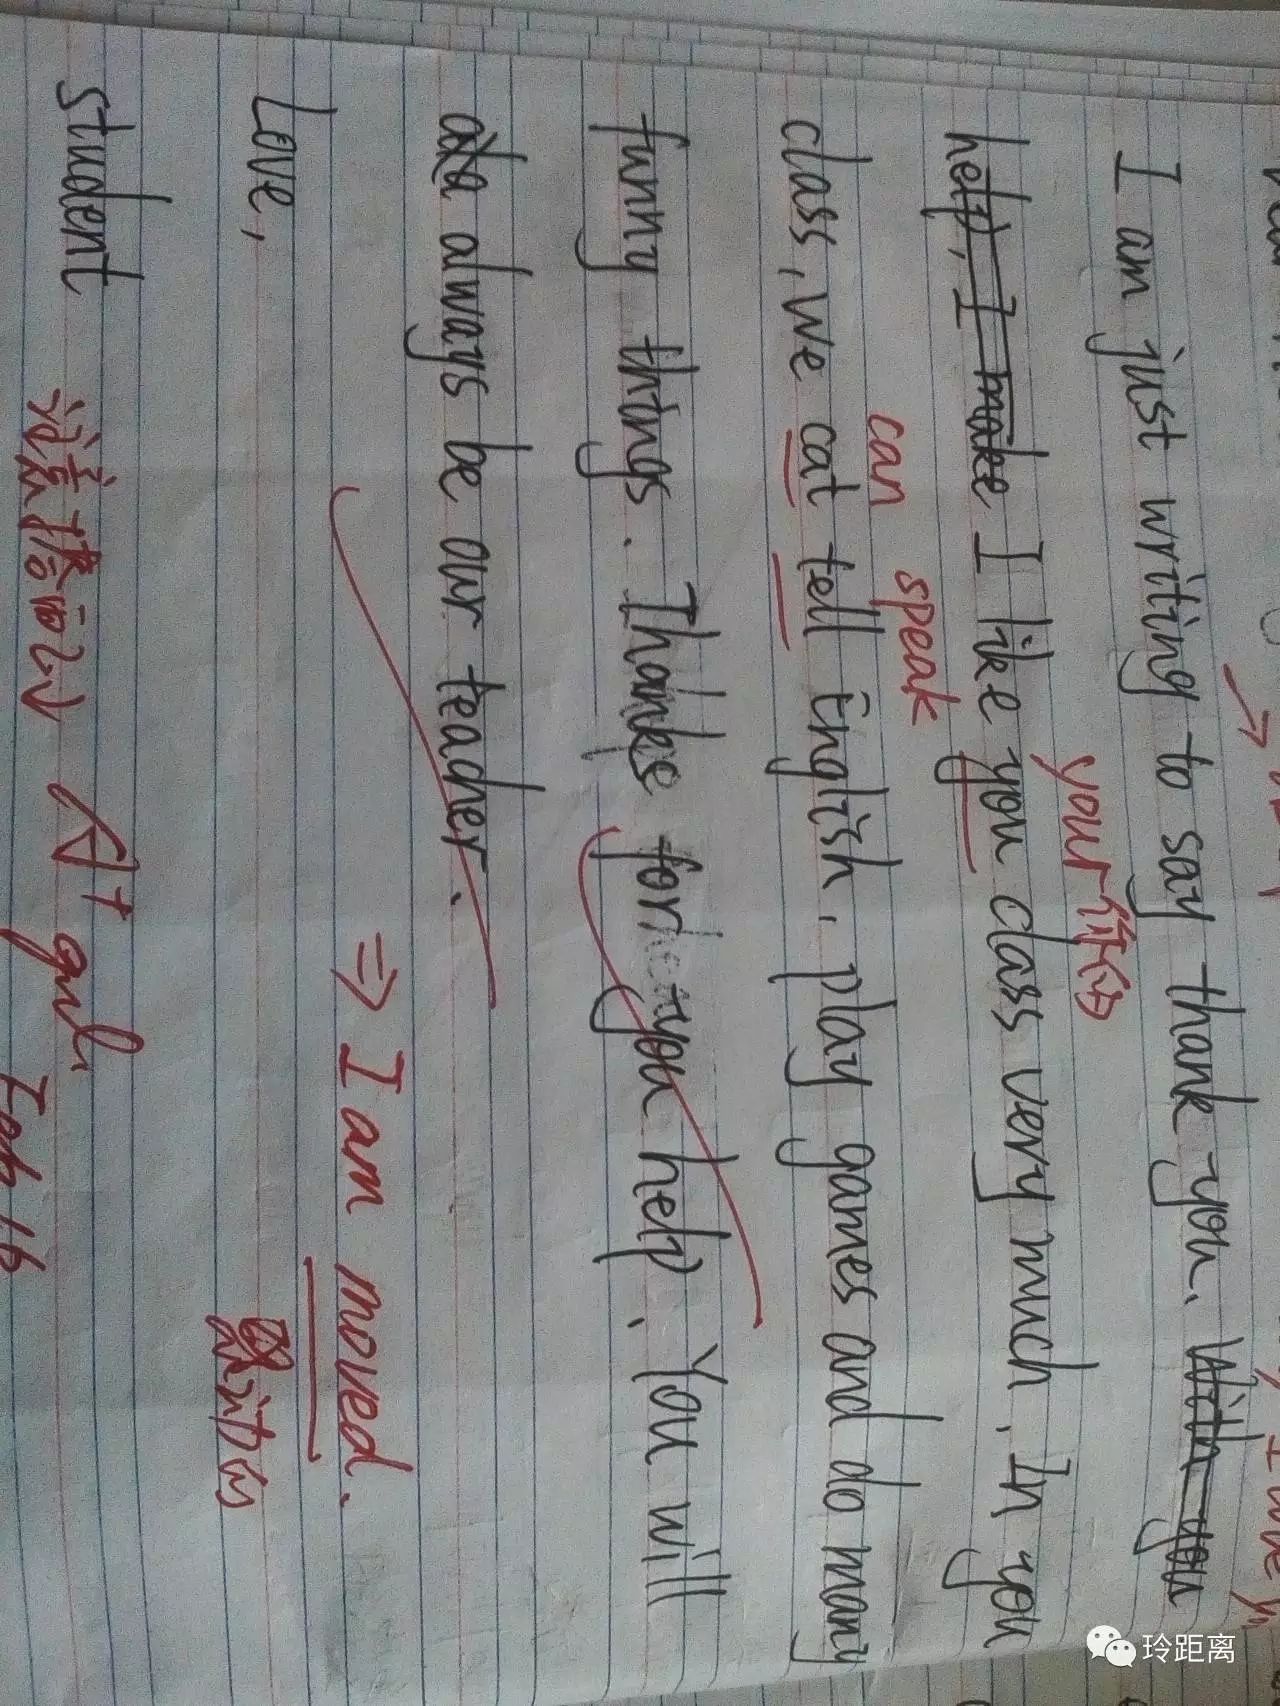 I am just writing to say thank you. With you
your 你的
help, I make I like you class very much. In you
can speak
class, we cat tell English, play games and do many
funny things. Thanks for you help. You will
always be our teacher.
⇒ I am moved.
Love,
student
注意搭配 A+
玲距离